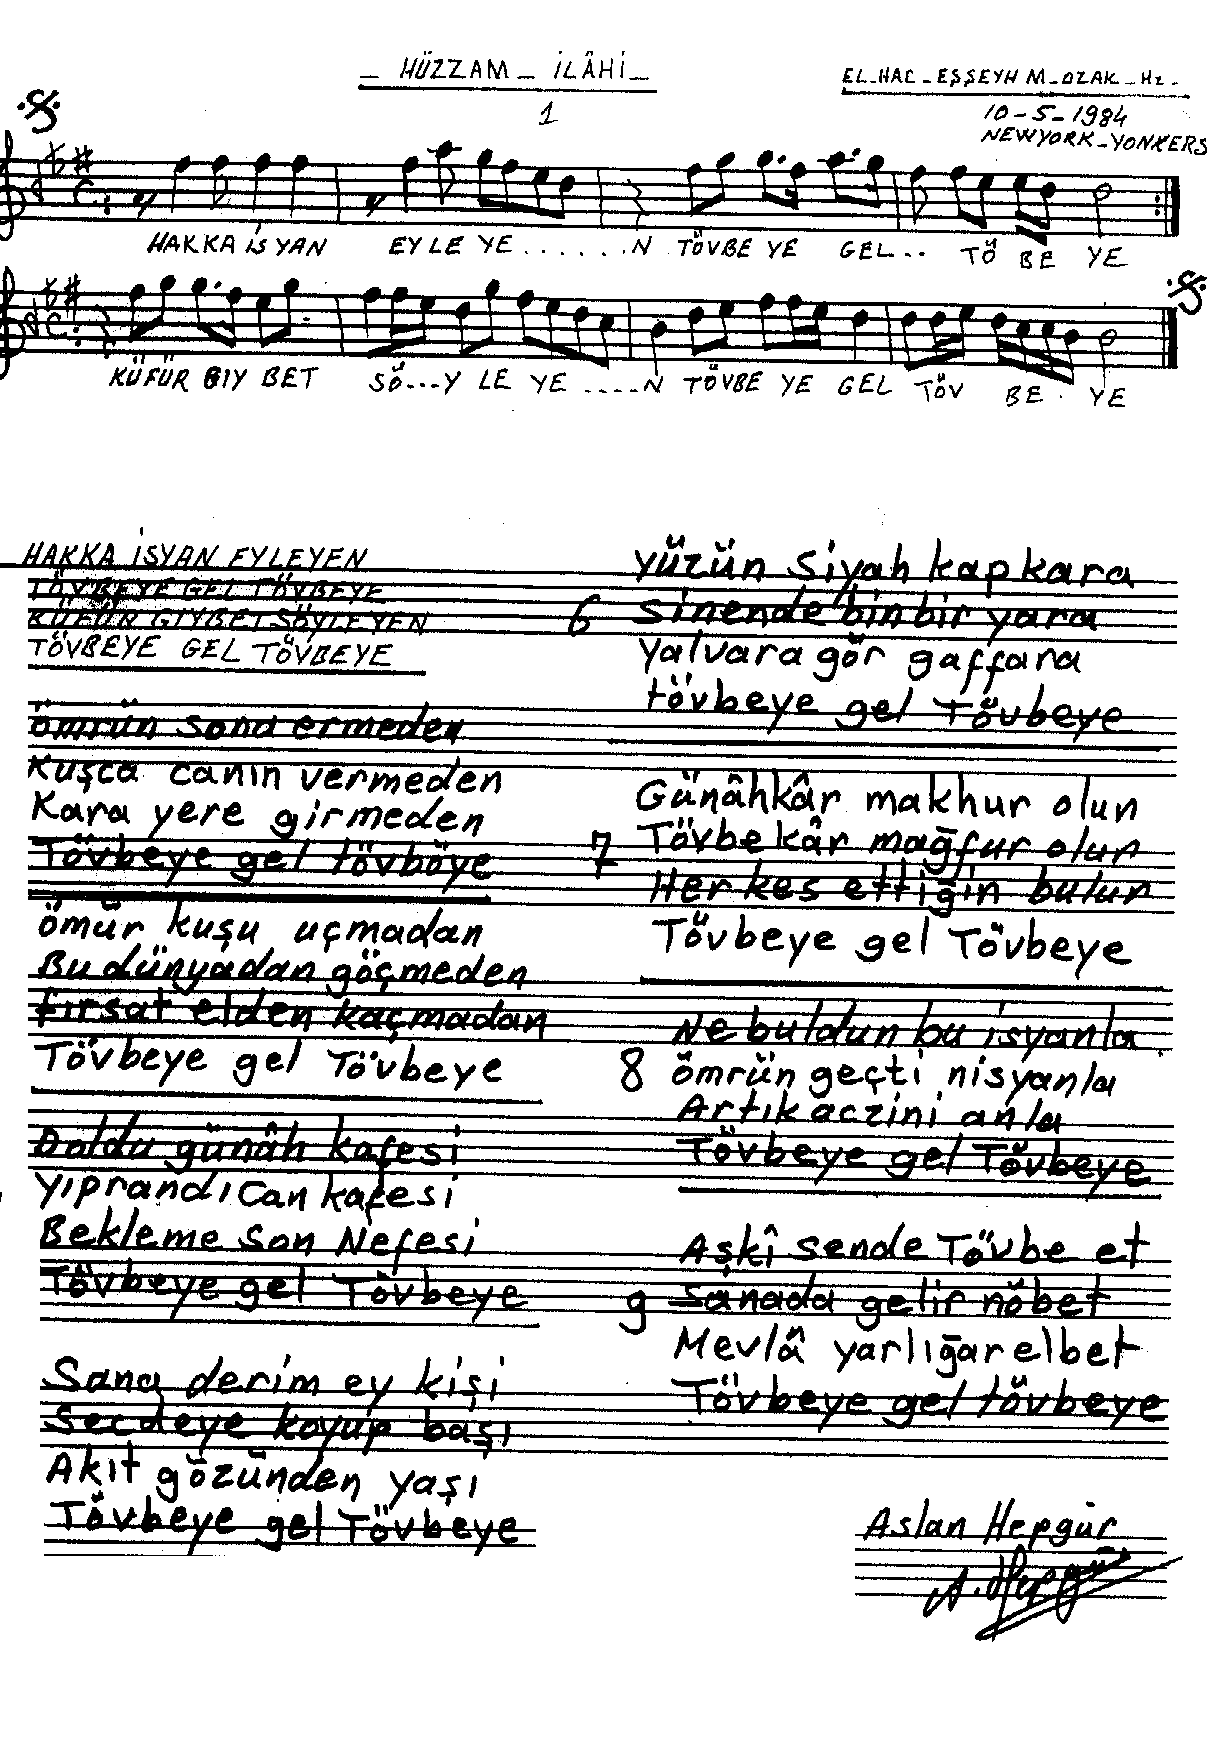 _ HÜZZAM _ İLÂHİ _
EL_HAC_EŞŞEYH M_OZAK_Hz_
1
10-5-1984
NEWYORK_YONKERS
HAKKA İSYAN EYLE YE......N TÖVBE YE GEL.. TÖ BE YE
KÜFÜR GIY BET SÖ...Y LE YE ....N TÖVBE YE GEL TÖV BE . YE
HAKKA İSYAN EYLEYEN
TÖVBEYE GEL TÖVBEYE
KÜFÜR GIYBET SÖYLEYEN
TÖVBEYE GEL TÖVBEYE
ömrün sona ermeden
Kuşca canın vermeden
Kara yere girmeden
Tövbeye gel tövböye
ömür kuşu uçmadan
Bu dünyadan göçmeden
fırsat elden kaçmadan
Tövbeye gel Tövbeye
Doldu günâh kafesi
yıprandı Can kafesi
Bekleme son Nefesi
Tövbeye gel Tövbeye
Sana derim ey kişi
Secdeye koyup başı
Akıt gözünden yaşı
Tövbeye gel Tövbeye
yüzün Siyah kapkara
6 sinende bin bir yara
yalvara gör gaffara
tövbeye gel Tövbeye
Günâhkâr makhur olun
7 Tövbekâr mağfur olur
Herkes ettiğin bulur
Tövbeye gel Tövbeye
Ne buldun bu isyanla
8 ömrün geçti nisyanla
Artık aczini anla
Tövbeye gel Tövbeye
Aşkî sende Tövbe et
9 Sanada gelir nöbet
Mevlâ yarlığar elbet
Tövbeye gel tövbeye
Aslan Hepgür
A. Hepgür